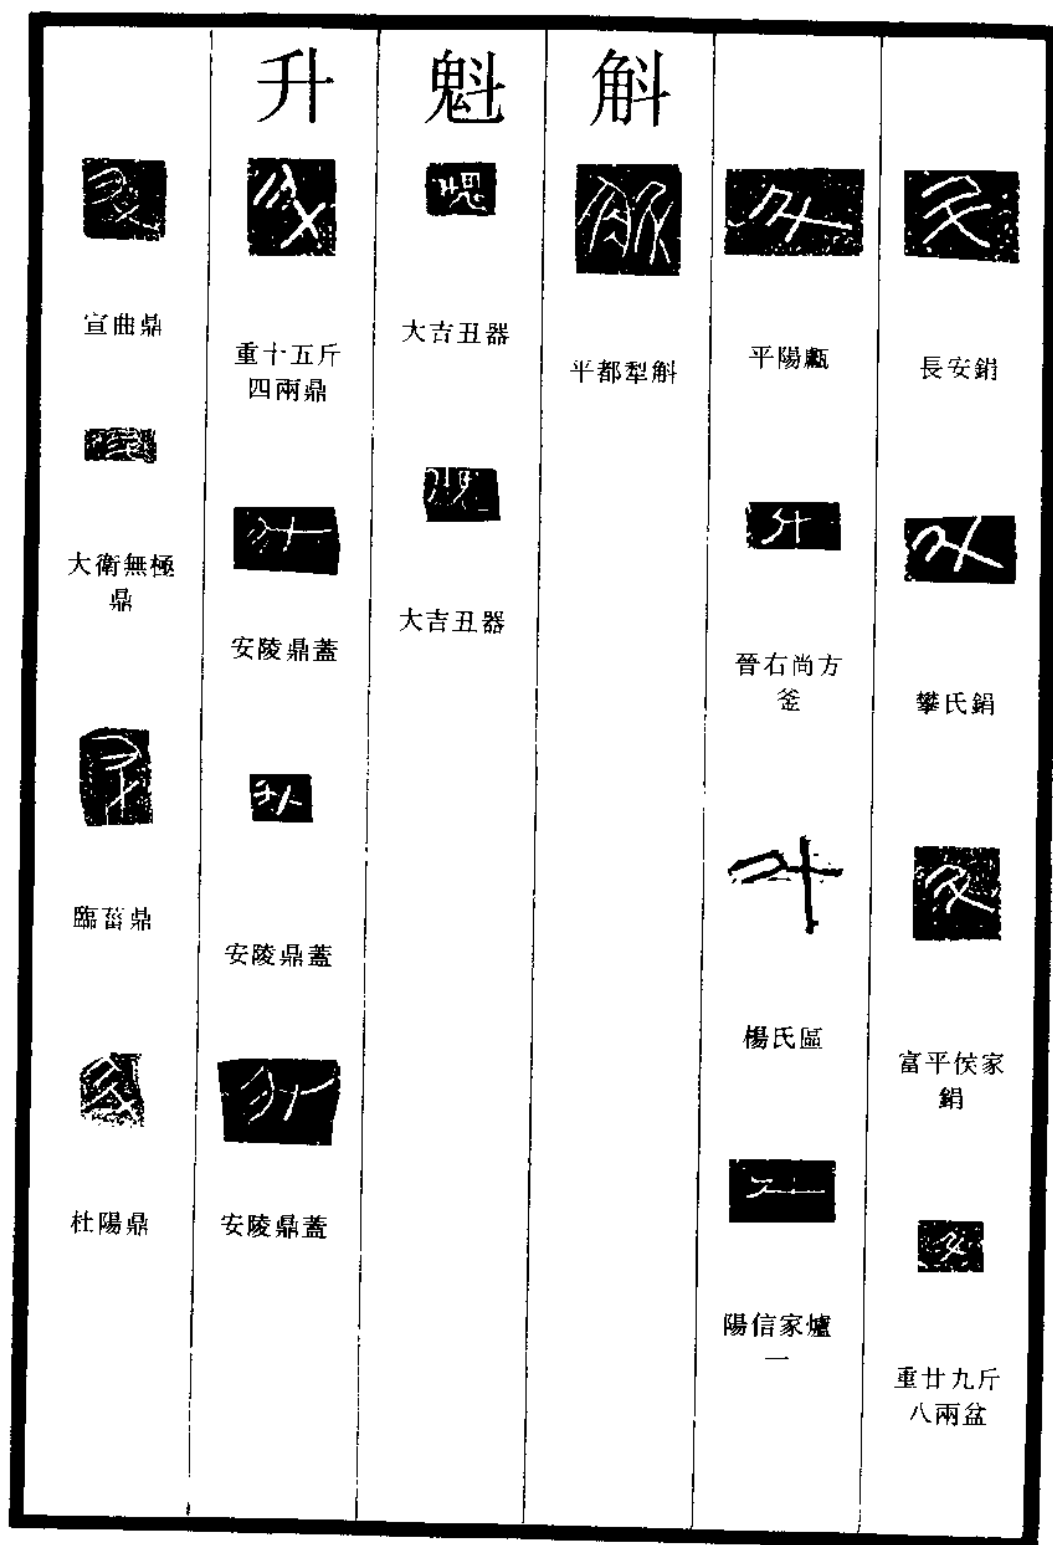 長安鋗
攀氏鋗
富平侯家
鋗
重廿九斤
八兩盆
平陽甗
晉右尚方
釜
楊氏區
陽信家爐
一
斛
平都犁斛
魁
大吉丑器
大吉丑器
升
重十五斤
四兩鼎
安陵鼎蓋
安陵鼎蓋
安陵鼎蓋
宣曲鼎
大衛無極
鼎
臨菑鼎
杜陽鼎